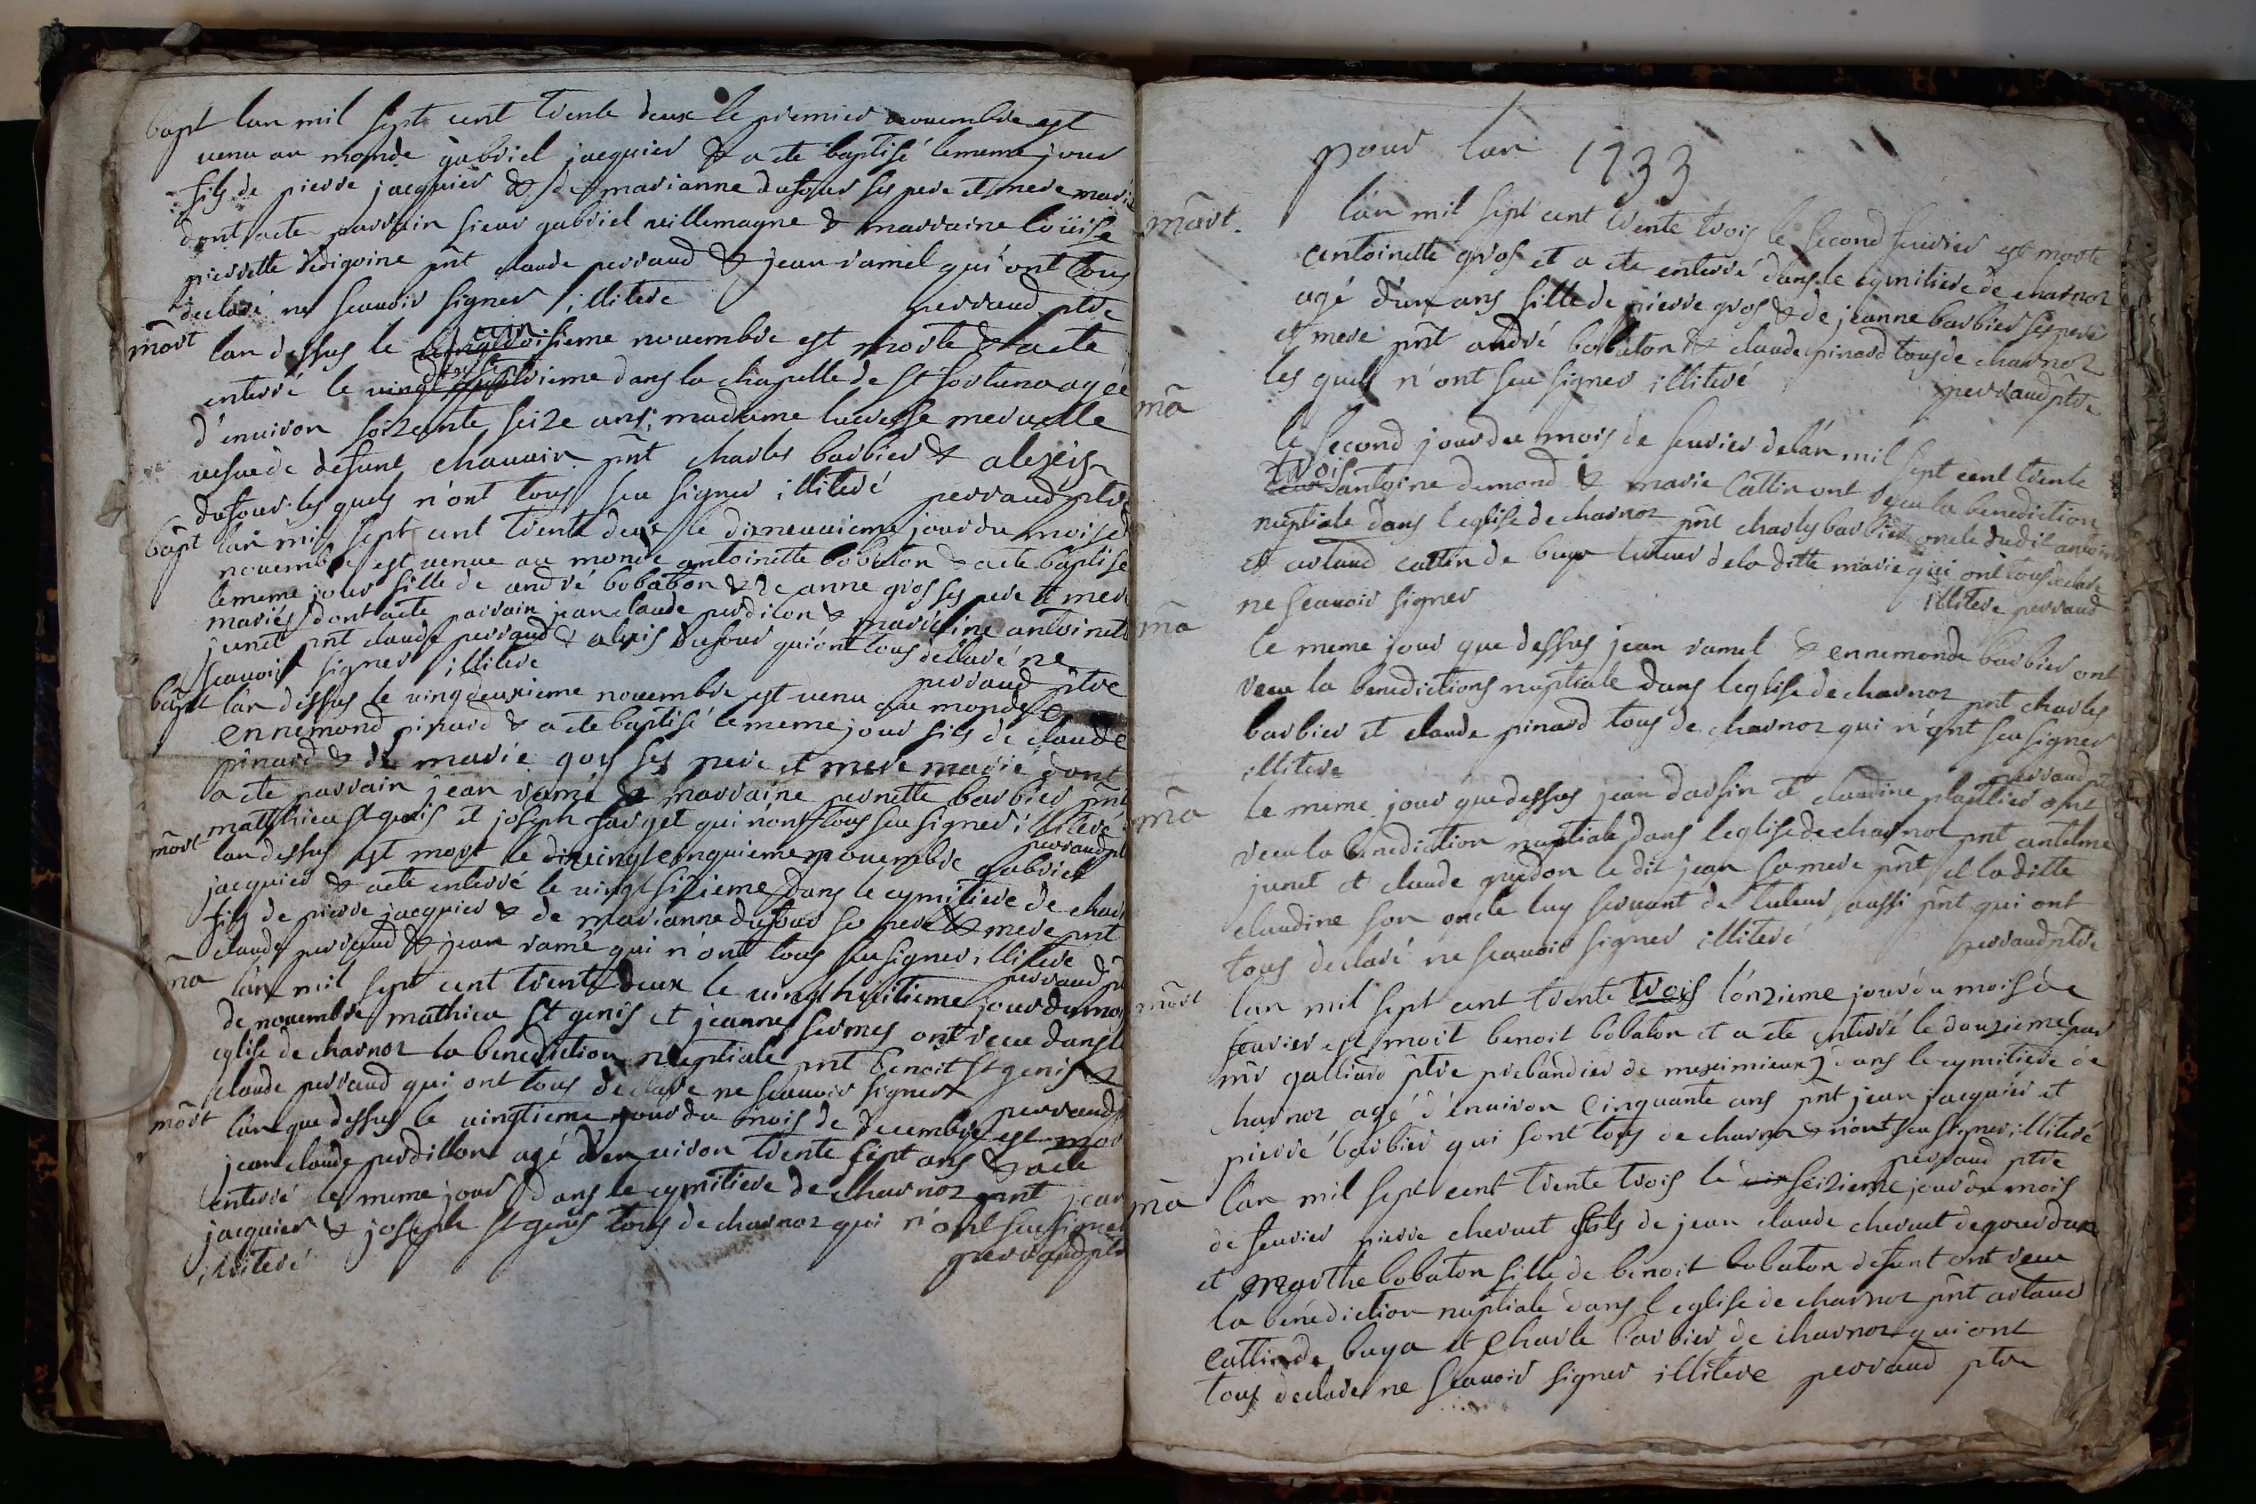 bapt lan mil sept cent trente deux le premier nouembre est
venu au monde gabriel jacquier & a ete baptisé lememe jour
fils de pierre jacquier & de marianne dufour ses pere et mere marié
dont acte parrain sieur gabriel uillemagne & marraine loüise
pierrette pñt claude perraud & jean ramel qui ont tous
declaré ne scauoir signer illiteré perraud ptre
mort lan dessus le nouembre est morte & a ete
enterré le dans la chapelle de st fortuna agée
d'enuiron soizente seize ans, madame merualle
uefue de defunt chauuin pñt charles barbier & alexis
dufour les quels n'ont tous seu signer illiteré perraud ptre
bapt lan mil sept cent trente deux le dixneuuieme jour du mois de
nouembre est uenue au monde antoinette bobaton & a ete baptisé
lememe jour fille de andré bobaton & de anne gros ses pere et mere
mariés dont acte parrain jean claude perdilon & antoinette
junet pnt claude perraud & alexis dufour qui ont tous declaré ne
scauoir signer illitere perraud ptre
bapt lan dessus le uingdeuxieme nouembre est uenu au monde
ennemond pinard & a ete baptisé lememe jour fils de claude
pinard & de marie gros ses pere et mere marié dont
acte parrain jean ramé & marraine pernette barbier pñt
matthieu st genis et joseph farget qui nont tous seu signer illiteré
perraud pt
mort lan dessus est mort le uingtcinquieme nouembre gabriel
jacquier & a ete enterré le uingt sizieme dans le cymitiere de char
fils de pierre jacquier & de marianne dufour se pere & mere pnt
claude perraud & jean ramé qui n'ont tous seu signer illitere
perraud pt
ma lan mil sept cent trente deux le uingt huitieme jour du moi
de nouembre mathieu st genis et jeanne fermes ont receu dans le
eglise de charnoz la benediction nuptiale pnt benoit st genis &
claude perraud qui ont tous declare ne scauoir signer
perraud
mort lan que dessus le uingtieme jour du mois de decembre est mor
jean claude perdillon agé d'enuiron trente sept ans & a ete
enterré le meme jour dans le cymitiere de charnoz pnt jean
jacquier & joseph st genis tous de charnoz qui n'ont seu signer
illiteré perraud ptr
pour lan 1733
mort. lan mil sept cent trente trois le second feurier est morte
antoinette gros et a ete enterré dans le cymitiere de charnoz
agé d'un ans fille de pierre gros & de jeanne barbier ses pere
et mere pñt andré bobaton & claude pinard tous de charnoz
les quels n'ont seu signer illiteré perraud ptre
ma le second jour du mois de feurier delan mil sept cent trente
trois antoine demond & marie cattin ont receu la benediction
nuptiale dans l'eglise de charnoz pnt charles barbier oncle dudit antoine
et artaud cattin de buya tuteur de la ditte marie qui ont tous declaré
ne scauoir signer illitere perraud
ma le meme jour que dessus jean ramel & ennemonde barbier ont
receu la benedictions nuptiale dans leglise de charnoz pnt charles
barbier et claude pinard tous de charnoz qui n'ont seu signer
illitere perraud pt
ma le meme jour que dessus jean darsin et claudine plantier ont
receu la benediction nuptiale dans leglise de charnoz pnt antelme
junet et claude guedon le dit jean sa mere pñt et la ditte
claudine son oncle luy seruant de tuteur aussi pñt qui ont
tous declaré ne scauoir signer illiteré perraud ptre
mort lan mil sept cent trente trois l'onzieme jour du mois de
feurier est mort benoit bobaton et a ete enterré le douzieme par
mr galliard ptre prebandier de meximieux dans le cymitiere de
charnoz agé d'enuiron cinquante ans pnt jean jacquier et
pierre barbier qui sont tous de charnoz & n'ont seu signer illiteré
perraud ptre
ma lan mil sept cent trente trois le seizieme jour du mois
de feurier pierre cheruet fils de jean claude cheruet de
et marthe bobaton fille de benoit bobaton defunt ont receu
la bénédiction nuptiale dans l'eglise de charnoz pñt artaud
cattin de buya et charle barbier de charnoz qui ont
tous declaré ne scauoir signer illitere perraud ptre